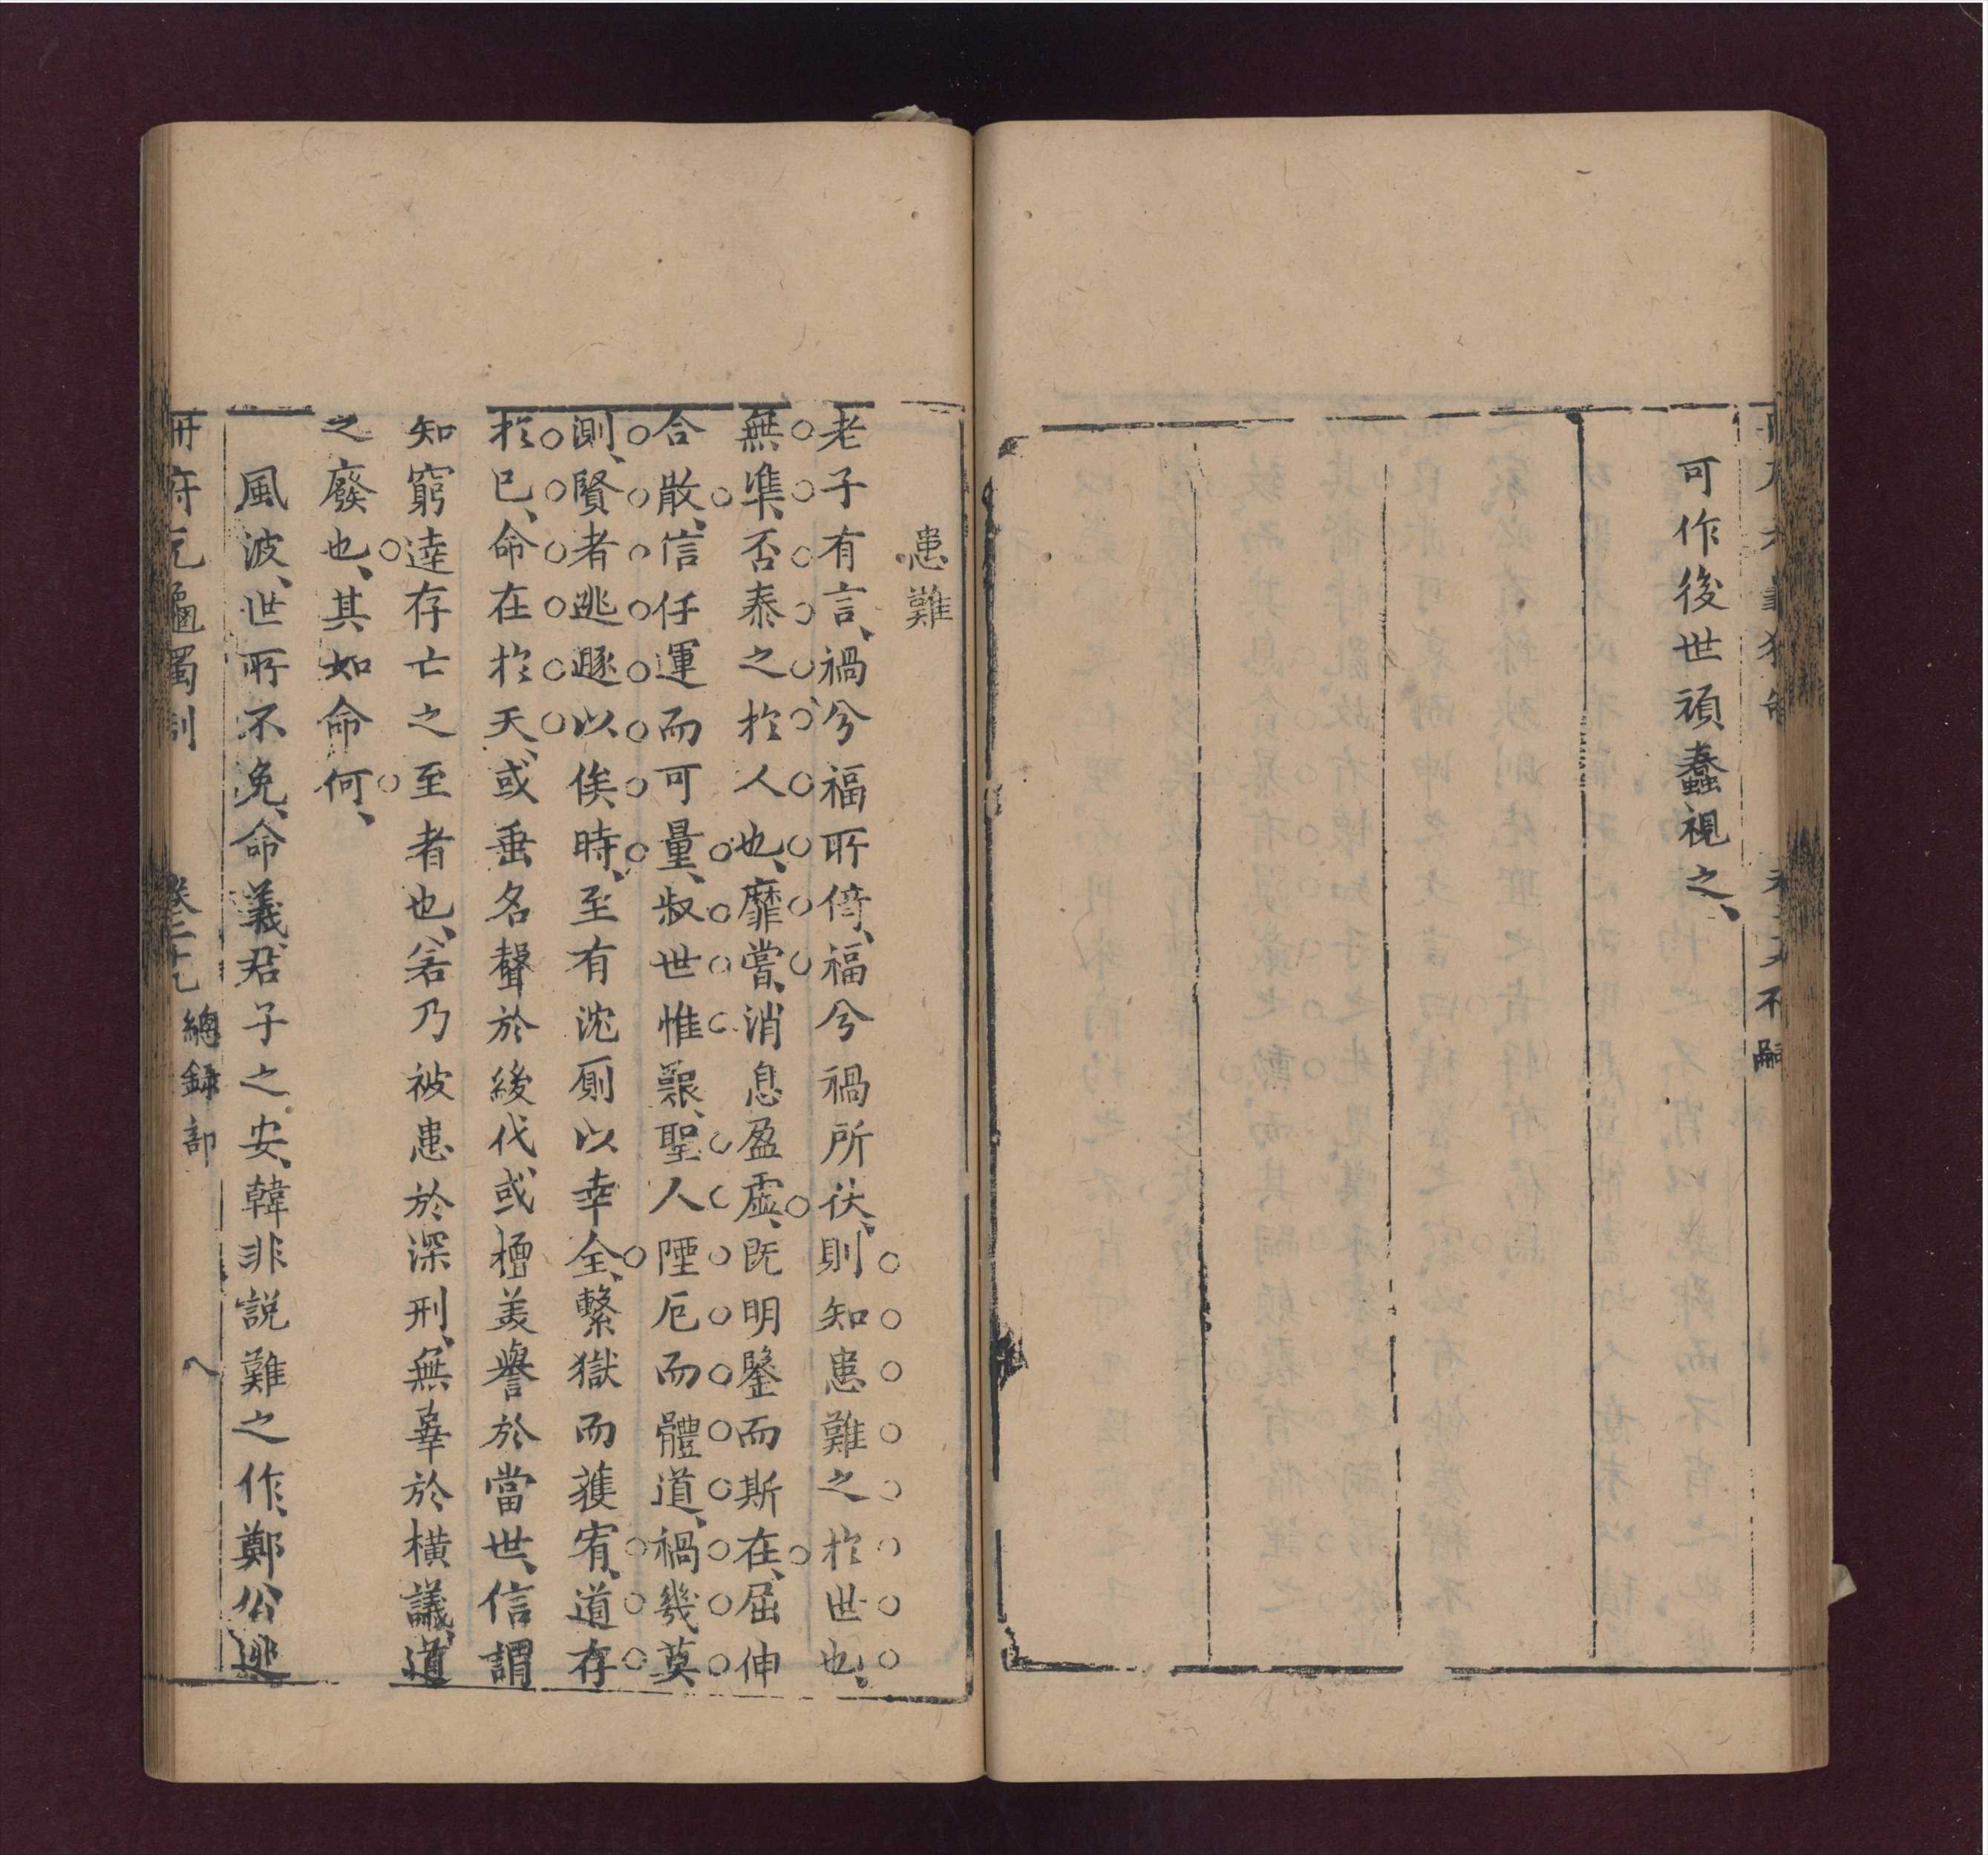 可作後世頑蠢視之、
患難
老子有言、禍兮福所倚、福兮禍所伏、則知患難之於世也、
無準、否泰之於人也、靡嘗、消息盈虛、既明鑒而斯在、屈伸
合散、信任運而可量、叔世惟艱、聖人陻厄而體道、禍幾莫
測、賢者逃遯以俟時、至有沈厠以幸全、繫獄而獲宥、道存
於已、命在於天、或垂名聲於後代、或擅美譽於當世、信謂
知窮達存亡之至者也、若乃被患於深刑、無辜於橫議、道
之廢也、其如命何、
風波、世所不免、命義、君子之安、韓非説難之作、鄭公逃
冊府元龜獨制 卷二十九 總錄部 八